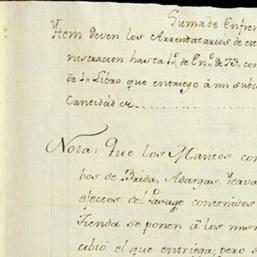 Suma de Enfren
Ytem deven los Arrendatarios de
nistracion hasta 1º de Enº de 73, con
de Libro que entriego à mi
Cantidad de ..............
Nota: Que los Mancos con
bos de Brida, Adargas,
efectos del Pasage contenidos
Tienda se ponen à los mis
cibió el que entriega; pero s